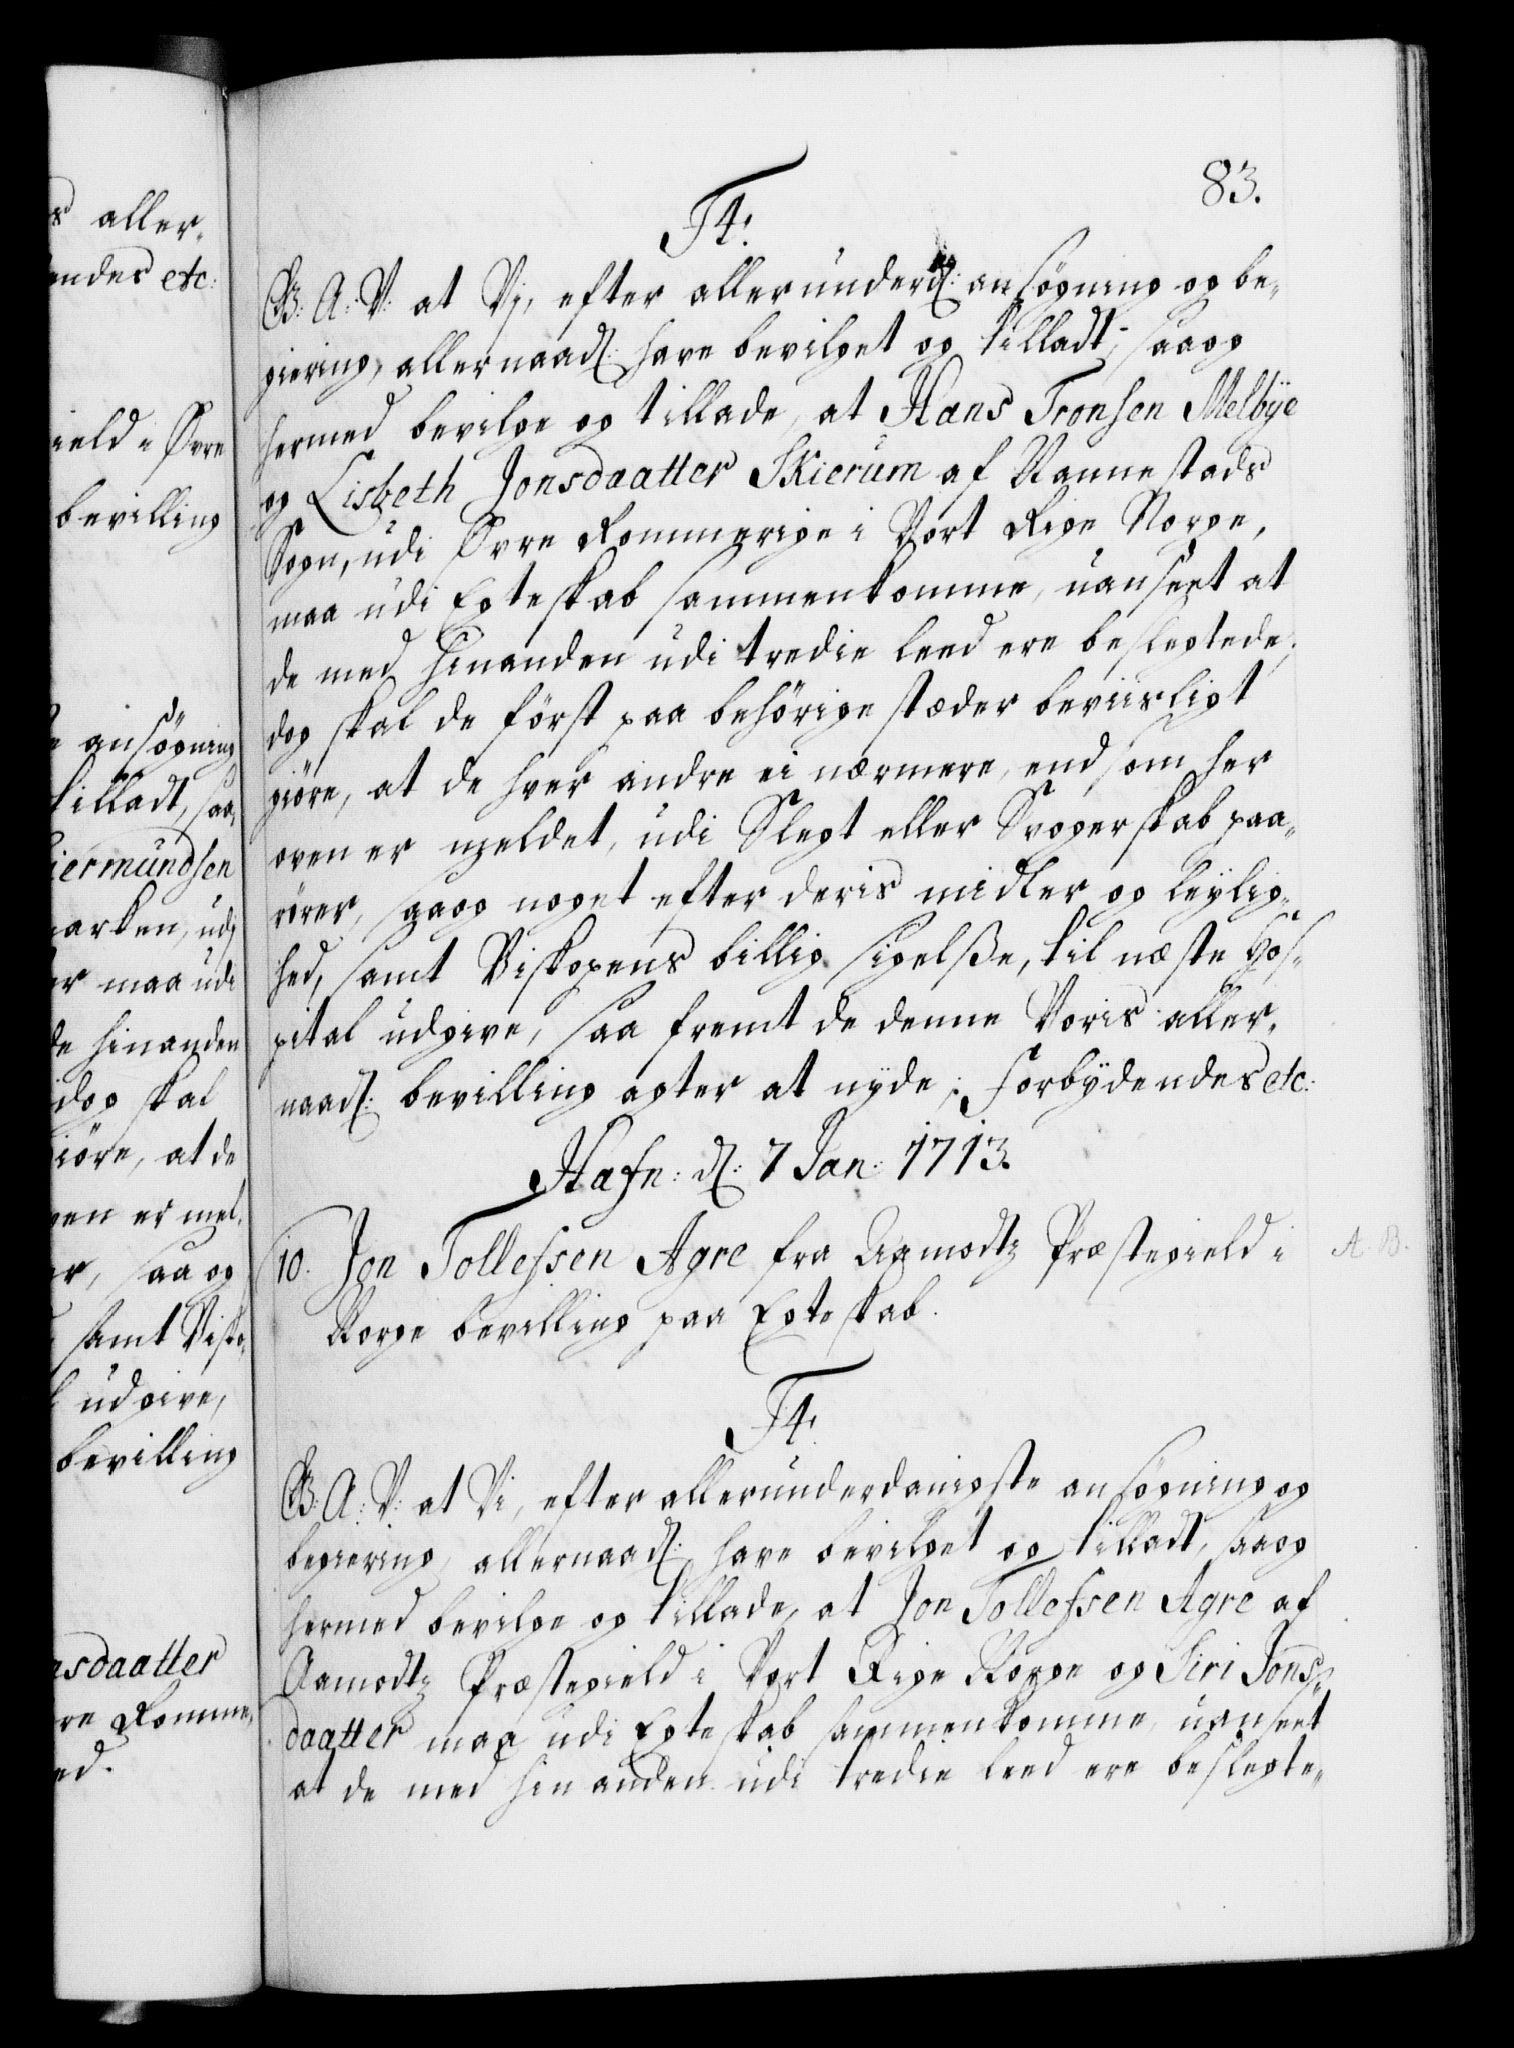 83.
F4.
G: A: V: at Vj, efter allerunderd: ansögning og be-
giering, allernaad: have bevilget og tilladt, saa og
hermed bevilge og tillade, at Hans Tronsen Melbÿe
og Lisbeth Jonsdaatter Skierum af Nannestads
Sogn, udi Øvre Rommerige i Vort Rige Norge,
maa udi Egteskab sammenkomme, uanseet at
de med hinanden udi tredie leed ere beslegtede;
dog skal de först paa behörige stæder beviisligt
giöre, at de hver andre ei nærmere, end som her
oven er meldet, udi Slegt eller Svogerskab paa-
rörer, saa og noget efter deris midler og leÿlig-
hed, samt Biskopens billig sigelsße, til næste Hos-
pital udgive, saa fremt de denne Voris aller-
naad: bevilling agter at nÿde; Forbÿdendes etc:
Hafn: d: 7 Jan: 1713.
10. Jon Tollefsen Agre fra Aamodtz Præstegield i
A. B.
Norge bevilling paa Egteskab.
F4.
G: A: V: at Vi, efter allerunderdanigste ansögning og
begiering, allernaad: have bevilget og tilladt, saa og
hermed bevilge og tillade, at Jon Tollefsen Agre af
Aamodtz Præstegield i Vort Rige Norge og Siri Jons-
daatter maa udi Egteskab sammenkomme, uanseet
at de med hin anden udi tredie leed ere beslegte-
s aller-
endes etc:
ield i Øvre
bevilling
ansögning
tilladt, saa
iermundsen
marken, udi
er maa udi
de hinanden
dog skal
iöre, at de
ven er mel-
er, saa og
samt Bisko-
udgive,
bevilling
nsdaatter
re Romme-
ed.